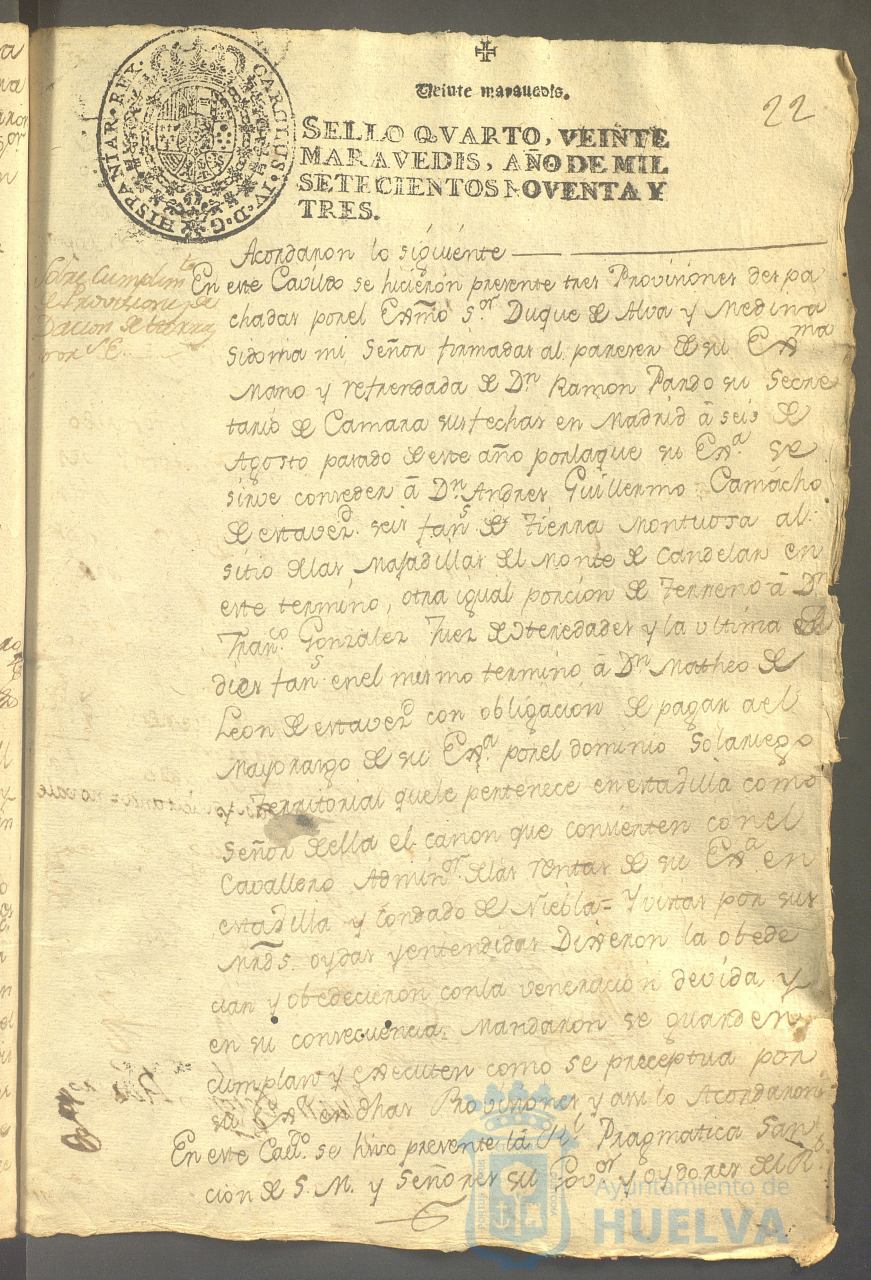 CAROLUS·IV·D·G·HISPANIAR·REX·
Veinte maravedis.
22
SELLO QVARTO, VEINTE
MARAVEDIS, AÑO DE MIL
SETECIENTOS NOVENTA Y
TRES.
Acordaron lo siguiente
Sobre Cumplimto
de Provisiones de
Dacion de tierras
por S. E.
En este Cavildo se hicieron presente tres Provisiones des pa
chadas por el Exmo Sor Duque de Alva y Medina
Sidonia mi Señor firmadas al parecer de su Exma
Mano y refrendada de Dn Ramon Pardo su Secre
tario de Camara sus fechas en Madrid â seis de
Agosto pasado de este año por la que su Exa se
sirve conseder â Dn Andres Guillermo Camacho
de esta vecd seis fans de Tierra Montuosa al
sitio de las Majadillas del Monte de Candelar en
este termino, otra igual porcion de Terreno â Dn
Franco Gonzalez Juez de Heredades y la ultima de
dies fans en el mismo termino â Dn Matheo de
Leon de esta vecd con obligacion de pagar a el
Mayorasgo de su Exa por el dominio Solariego
y Territorial que le pertenece en esta villa como
Señor de ella el canon que consierten con el
Cavallero Adminor de las rentas de su Exa en
esta villa y Condado de Niebla = Y vistas por sus
Mrds oydas y entendidas Dixeron la obede
cian y obedecieron con la veneracion devida, y
en su consecuencia Mandaron se guarden
cumplan y executen como se preceptua por
su Exa en dhas Provisiones y assi lo Acordaron
En este Cavdo se hiso presente la Rl Pragmatica San
cion de S. M. y Señores su Govor y oydores del Rl
Ayuntamiento de
HUELVA